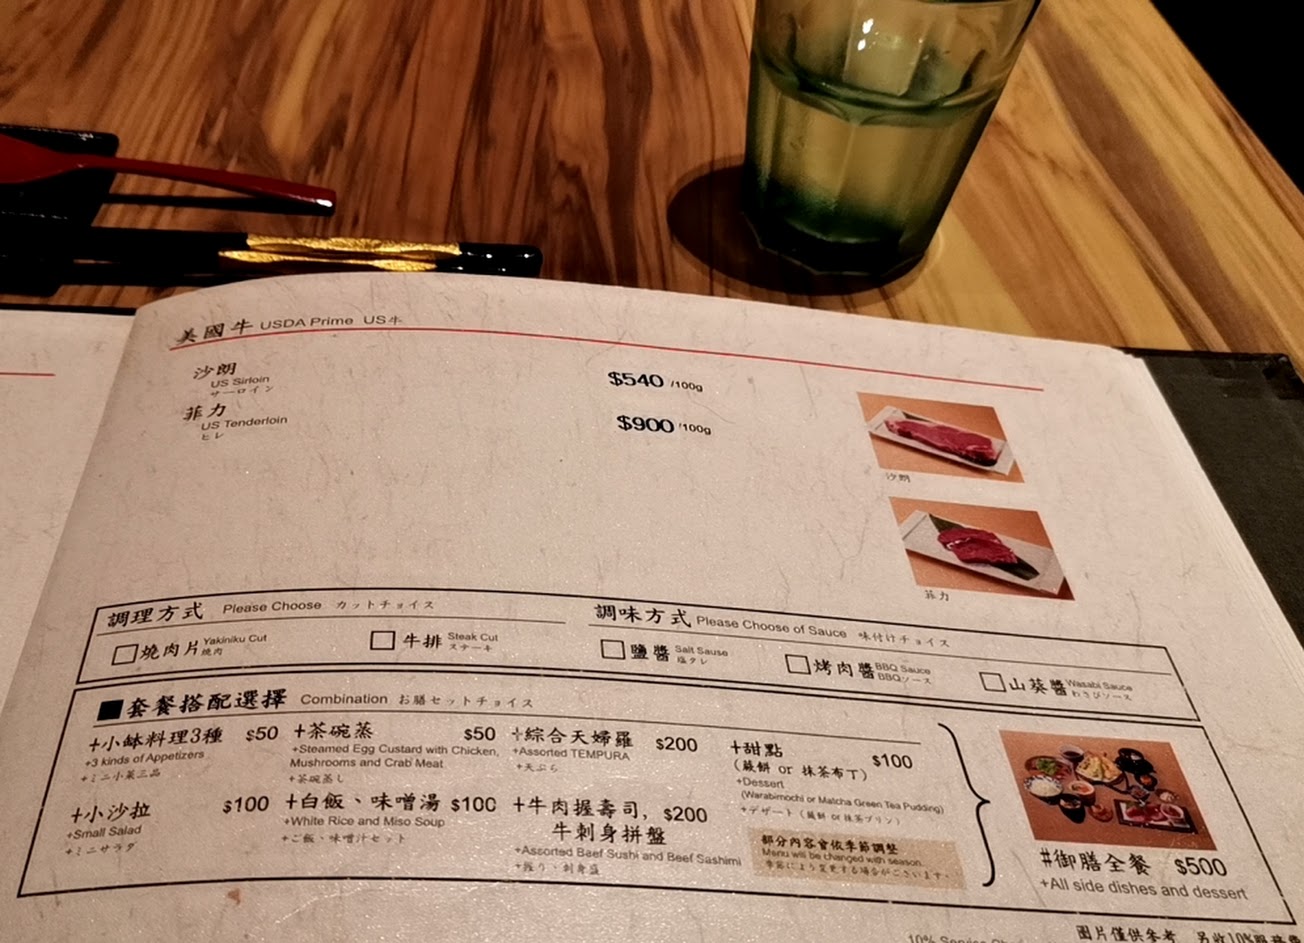 美國牛 USDA Prime US牛
沙朗 $540 /100g
US Sirloin
サーロイン
菲力 $900 /100g
US Tenderloin
ヒレ
沙朗
菲力
調理方式 Please Choose カットチョイス
□燒肉片 Yakiniku Cut 焼肉
□牛排 Steak Cut ステーキ
調味方式 Please Choose of Sauce 味付けチョイス
□鹽醬 Salt Sause 塩タレ
□烤肉醬 BBQ Sauce BBQソース
□山葵醬 Wasabi Sauce わさびソース
■套餐搭配選擇 Combination お膳セットチョイス
+小缽料理3種 $50
+3 kinds of Appetizers
+ミニ小菜三品
+茶碗蒸 $50
+Steamed Egg Custard with Chicken,
Mushrooms and Crab Meat
+茶碗蒸し
+綜合天婦羅 $200
+Assorted TEMPURA
+天ぷら
+甜點
(蕨餅 or 抹茶布丁) $100
+Dessert
(Warabimochi or Matcha Green Tea Pudding)
+デザート(蕨餅 or 抹茶プリン)
+小沙拉 $100
+Small Salad
+ミニサラダ
+白飯、味噌湯 $100
+White Rice and Miso Soup
+ご飯、味噌汁セット
+牛肉握壽司, $200
牛刺身拼盤
+Assorted Beef Sushi and Beef Sashimi
+握り、刺身盛
部分內容會依季節調整
Menu will be changed with season.
季節により変更する場合がございます。
#御膳全餐 $500
+All side dishes and dessert
圖片僅供參考 另收10%
10% Service